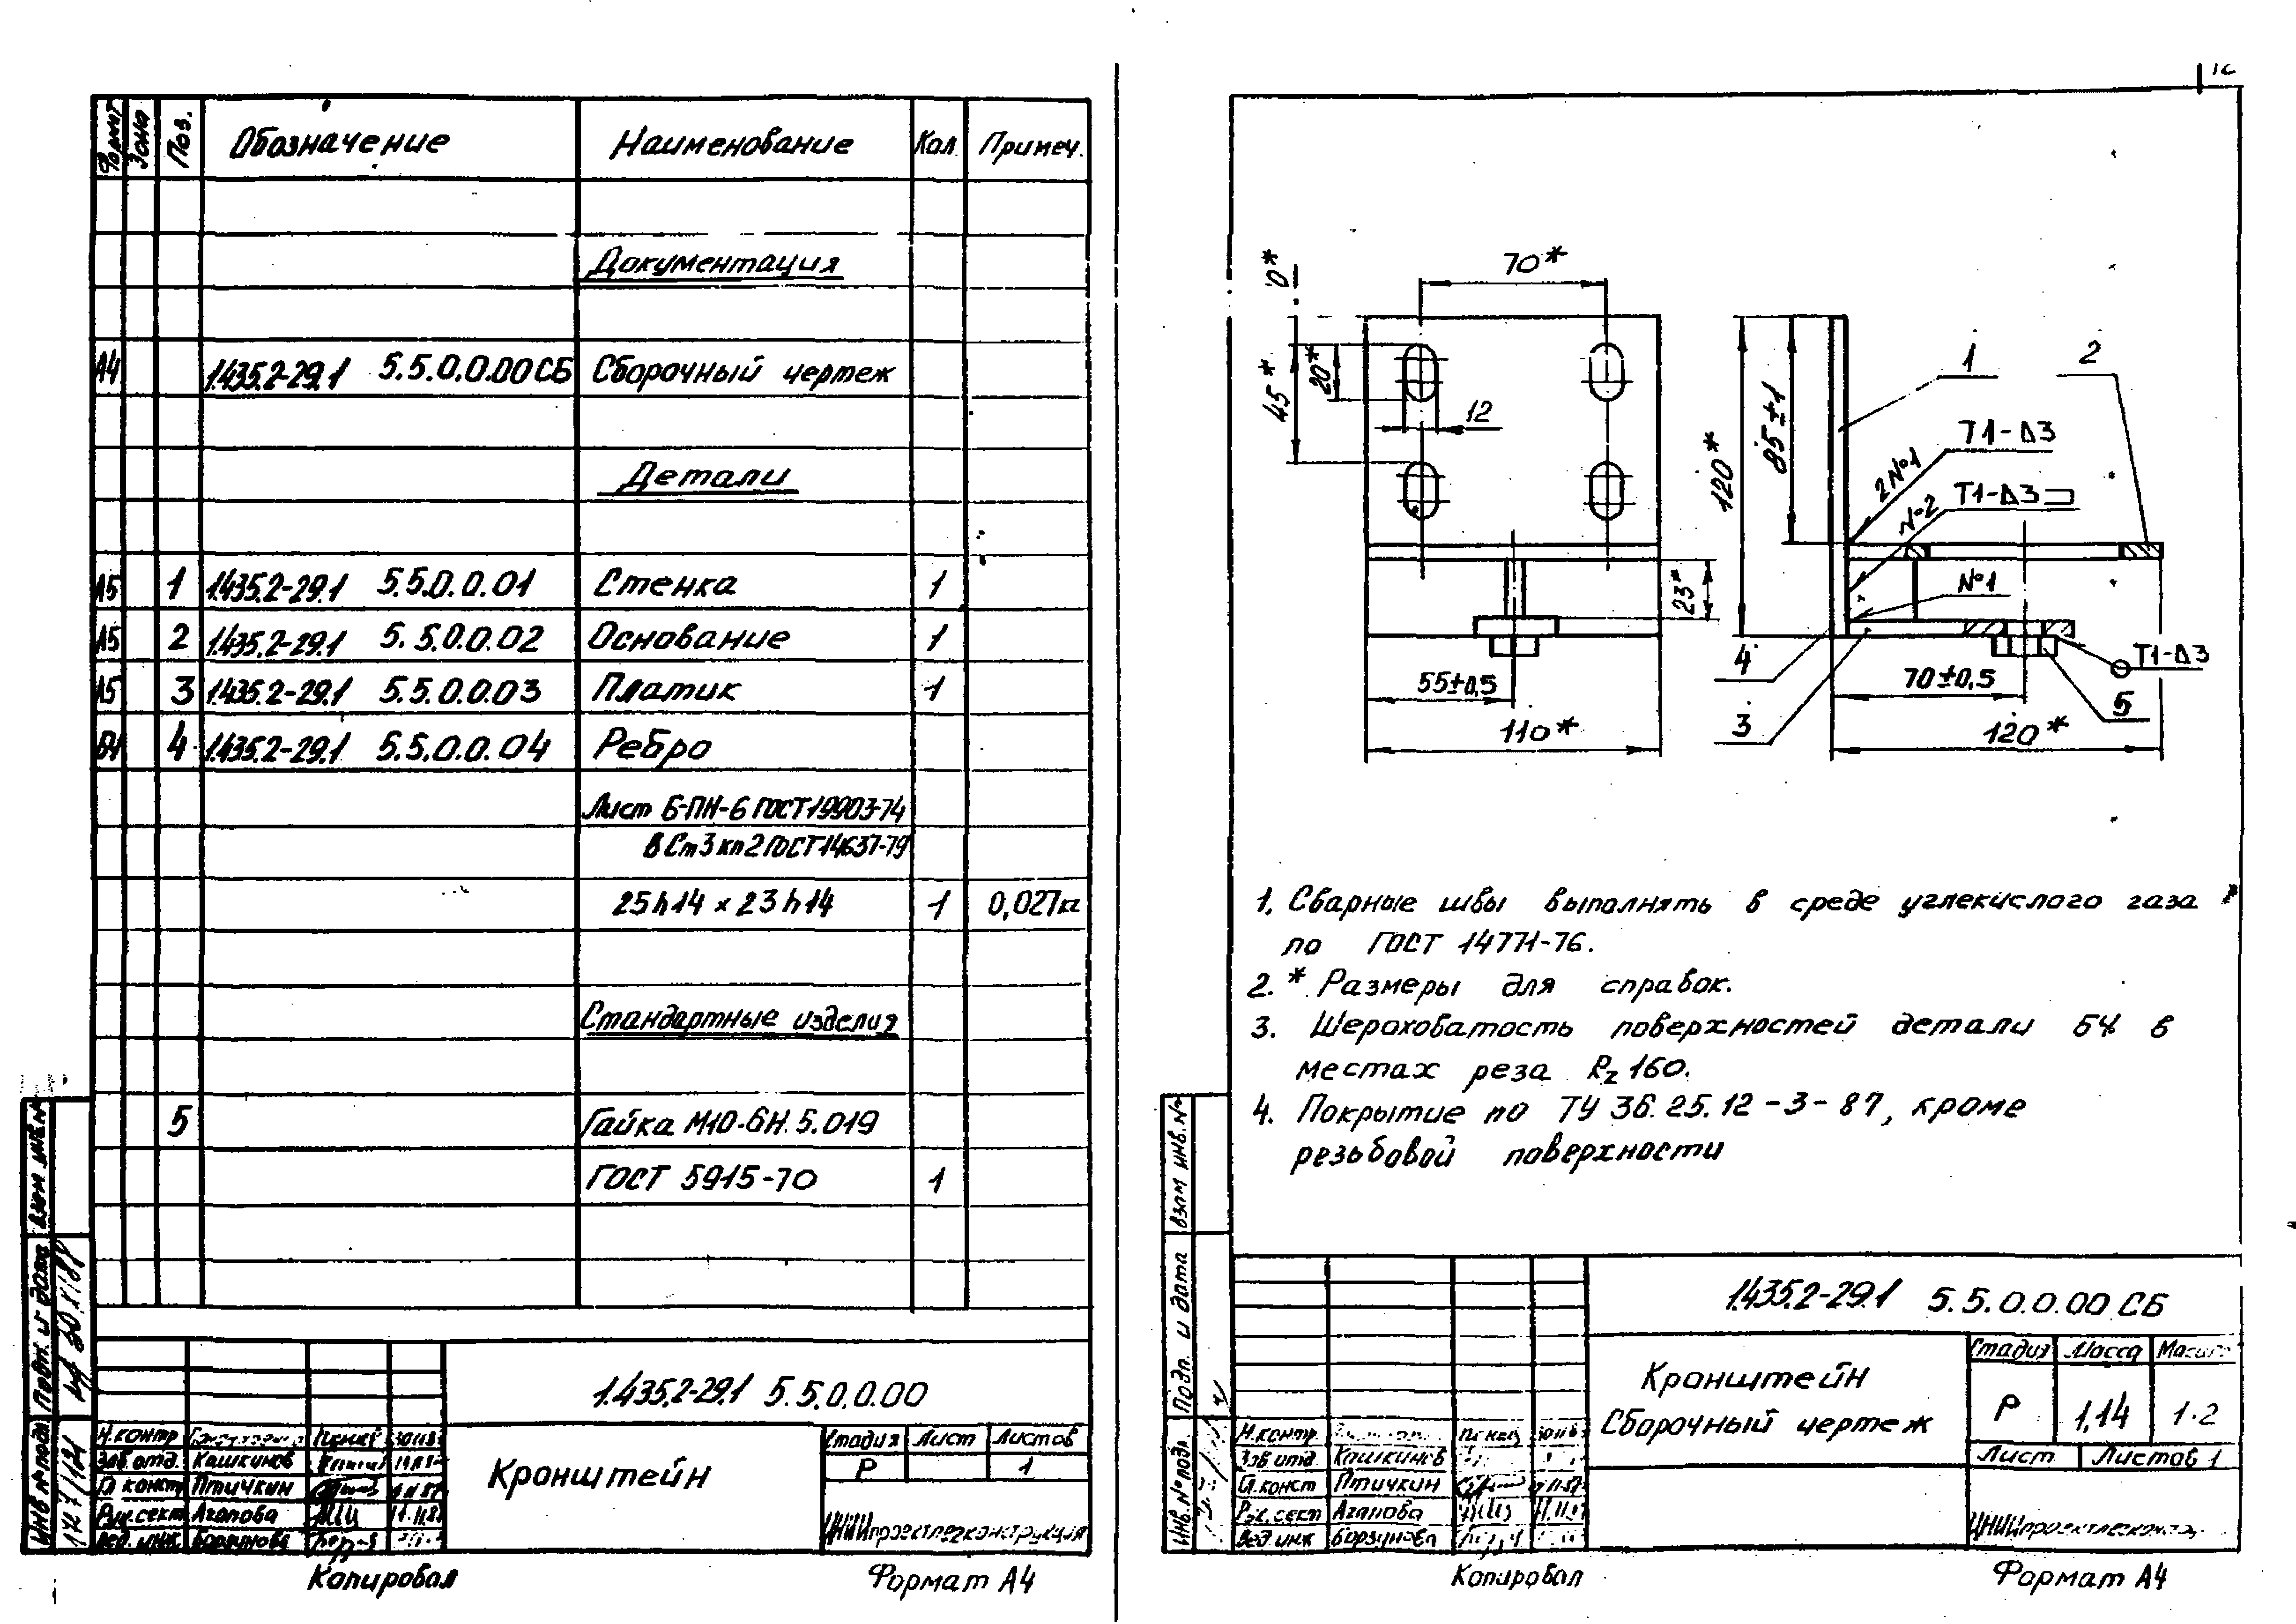 Формат Зона Поз. Обозначение Наименование Кол. Примеч.
Документация
А4 1.435.2-29.1 5.5.0.0.00 СБ Сборочный чертеж
Детали
А5 1 1.435.2-29.1 5.5.0.0.01 Стенка 1
А5 2 1.435.2-29.1 5.5.0.0.02 Основание 1
А5 3 1.435.2-29.1 5.5.0.0.03 Платик 1
БЧ 4 1.435.2-29.1 5.5.0.0.04 Ребро
Лист Б-ПН-6 ГОСТ 19903-74
ВСт3кп2 ГОСТ 14637-79
25h14 × 23h14 1 0,027кг
Стандартные изделия
5 Гайка М10-6Н.5.019
ГОСТ 5915-70 1
Взам инв.№
Подп. и дата
Инв № подл
1.435.2-29.1 5.5.0.0.00
Н.контр
Зав.отд. Кашкинов
Гл констр Птичкин
Рук.сект Агапова
Вед.инж. Борзунова
Кронштейн
Стадия Лист Листов
Р 1
ЦНИИпроектлегконструкция
Копировал Формат А4
70*
0*
45*
20*
12
55±0,5
110*
23*
120*
85±1
1
2
Т1-Δ3
2№1
Т1-Δ3
№2
№1
4
3
Т1-Δ3
5
70±0,5
120*
1. Сварные швы выполнять в среде углекислого газа
по ГОСТ 14771-76.
2. * Размеры для справок.
3. Шероховатость поверхностей детали БЧ в
местах реза Rz 160.
4. Покрытие по ТУ 36.25.12-3-87, кроме
резьбовой поверхности
Взам инв.№
Подп. и дата
Инв.№ подл.
1.435.2-29.1 5.5.0.0.00 СБ
Н.контр.
Зав отд. Кашкинов
Гл.конст Птичкин
Рук.сект Агапова
Вед.инж Борзунова
Кронштейн
Сборочный чертеж
Стадия Масса Масшт
Р 1,14 1:2
Лист Листов 1
Копировал Формат А4